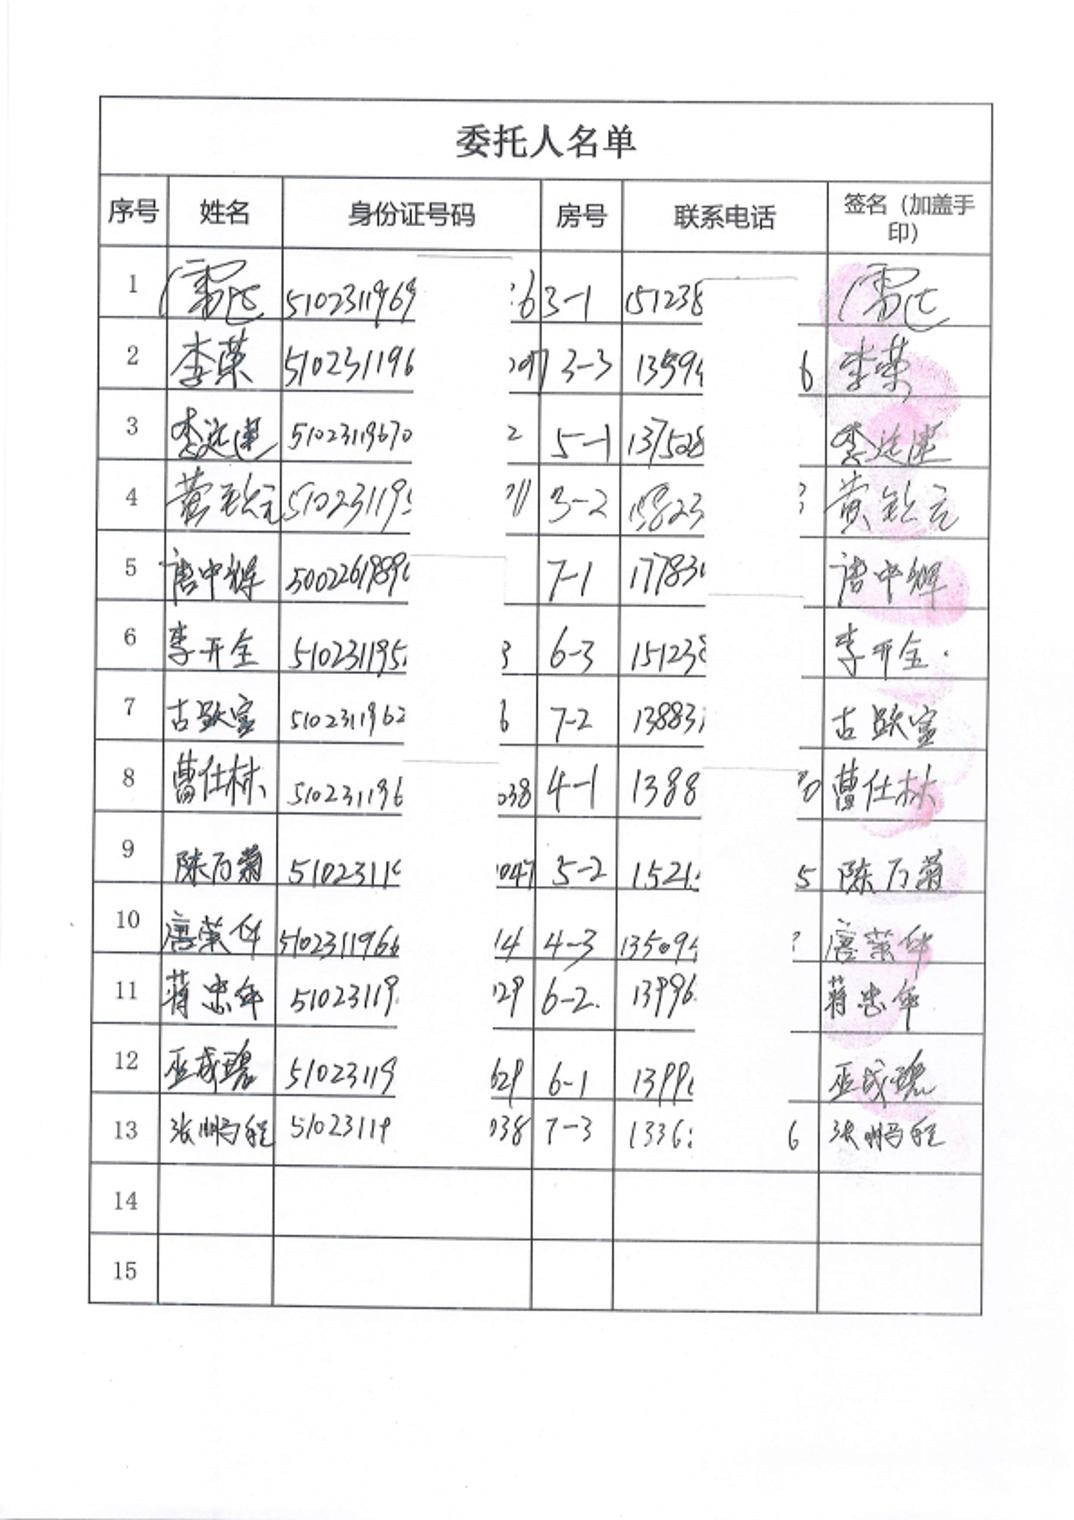 委托人名单
序号 姓名 身份证号码 房号 联系电话 签名（加盖手印）
1 5102311969 6 3-1 151238
2 李荣 510231196 3-3 13594 6 李荣
3 51023119670 2 5-1 137508
4 51023119 11 3-2 15823
5 唐中辉 500226198 7-1 17783 唐中辉
6 李开全 510231195 3 6-3 151238 李开全
7 5102311962 6 7-2 13883
8 曹仕林 510231196 038 4-1 1388 0 曹仕林
9 陈万菊 5102311 047 5-2 1521 5 陈万菊
10 唐荣华 5102311966 14 4-3 135094 唐荣华
11 蒋忠年 51023119 029 6-2 13996 蒋忠年
12 51023119 629 6-1 1399
13 张鹏程 51023119 038 7-3 1336 6 张鹏程
14
15